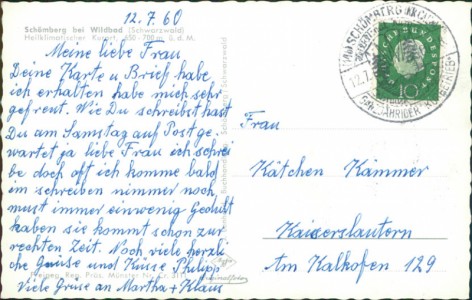 12.7.60
Schömberg bei Wildbad (Schwarzwald)
Heilklimatischer Kurort, 650-700 m ü. d. M.
Meine liebe Frau
Deine Karte u Brief habe
ich erhalten habe mich sehr
gefreut. Wie Du schreibst hast
Du am Samstag auf Post ge-
wartet ja liebe Frau ich schrei
be doch oft ich komme bald
ein schreiben nimmer noch
must immer einwenig Gedult
haben sie kommt schon zur
rechten Zeit. Noch viele herzli
che Grüsse und Küsse Philipp
Viele Grüse an Martha + Klaus
Schwarzwald
SCHÖMBERG
12.7.
JÄHRIGER
DEUTSCHE BUNDESPOST
10
Frau
Kätchen Kämmer
Kaiserslautern
Am Kalkofen 129